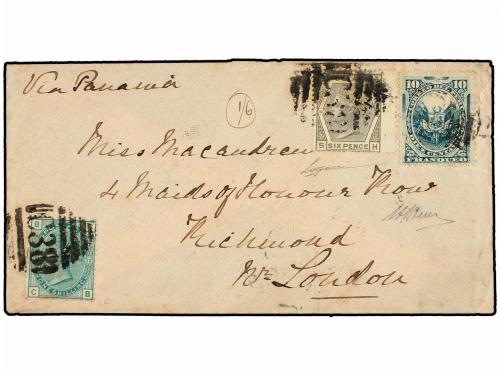 Via Panama
1/6
10 10
FRANQUEO
S SIX PENCE H
Miss Macandrew
4 Maids of Honour Row
Richmond
Nr London
B
C ONE SHILLING B